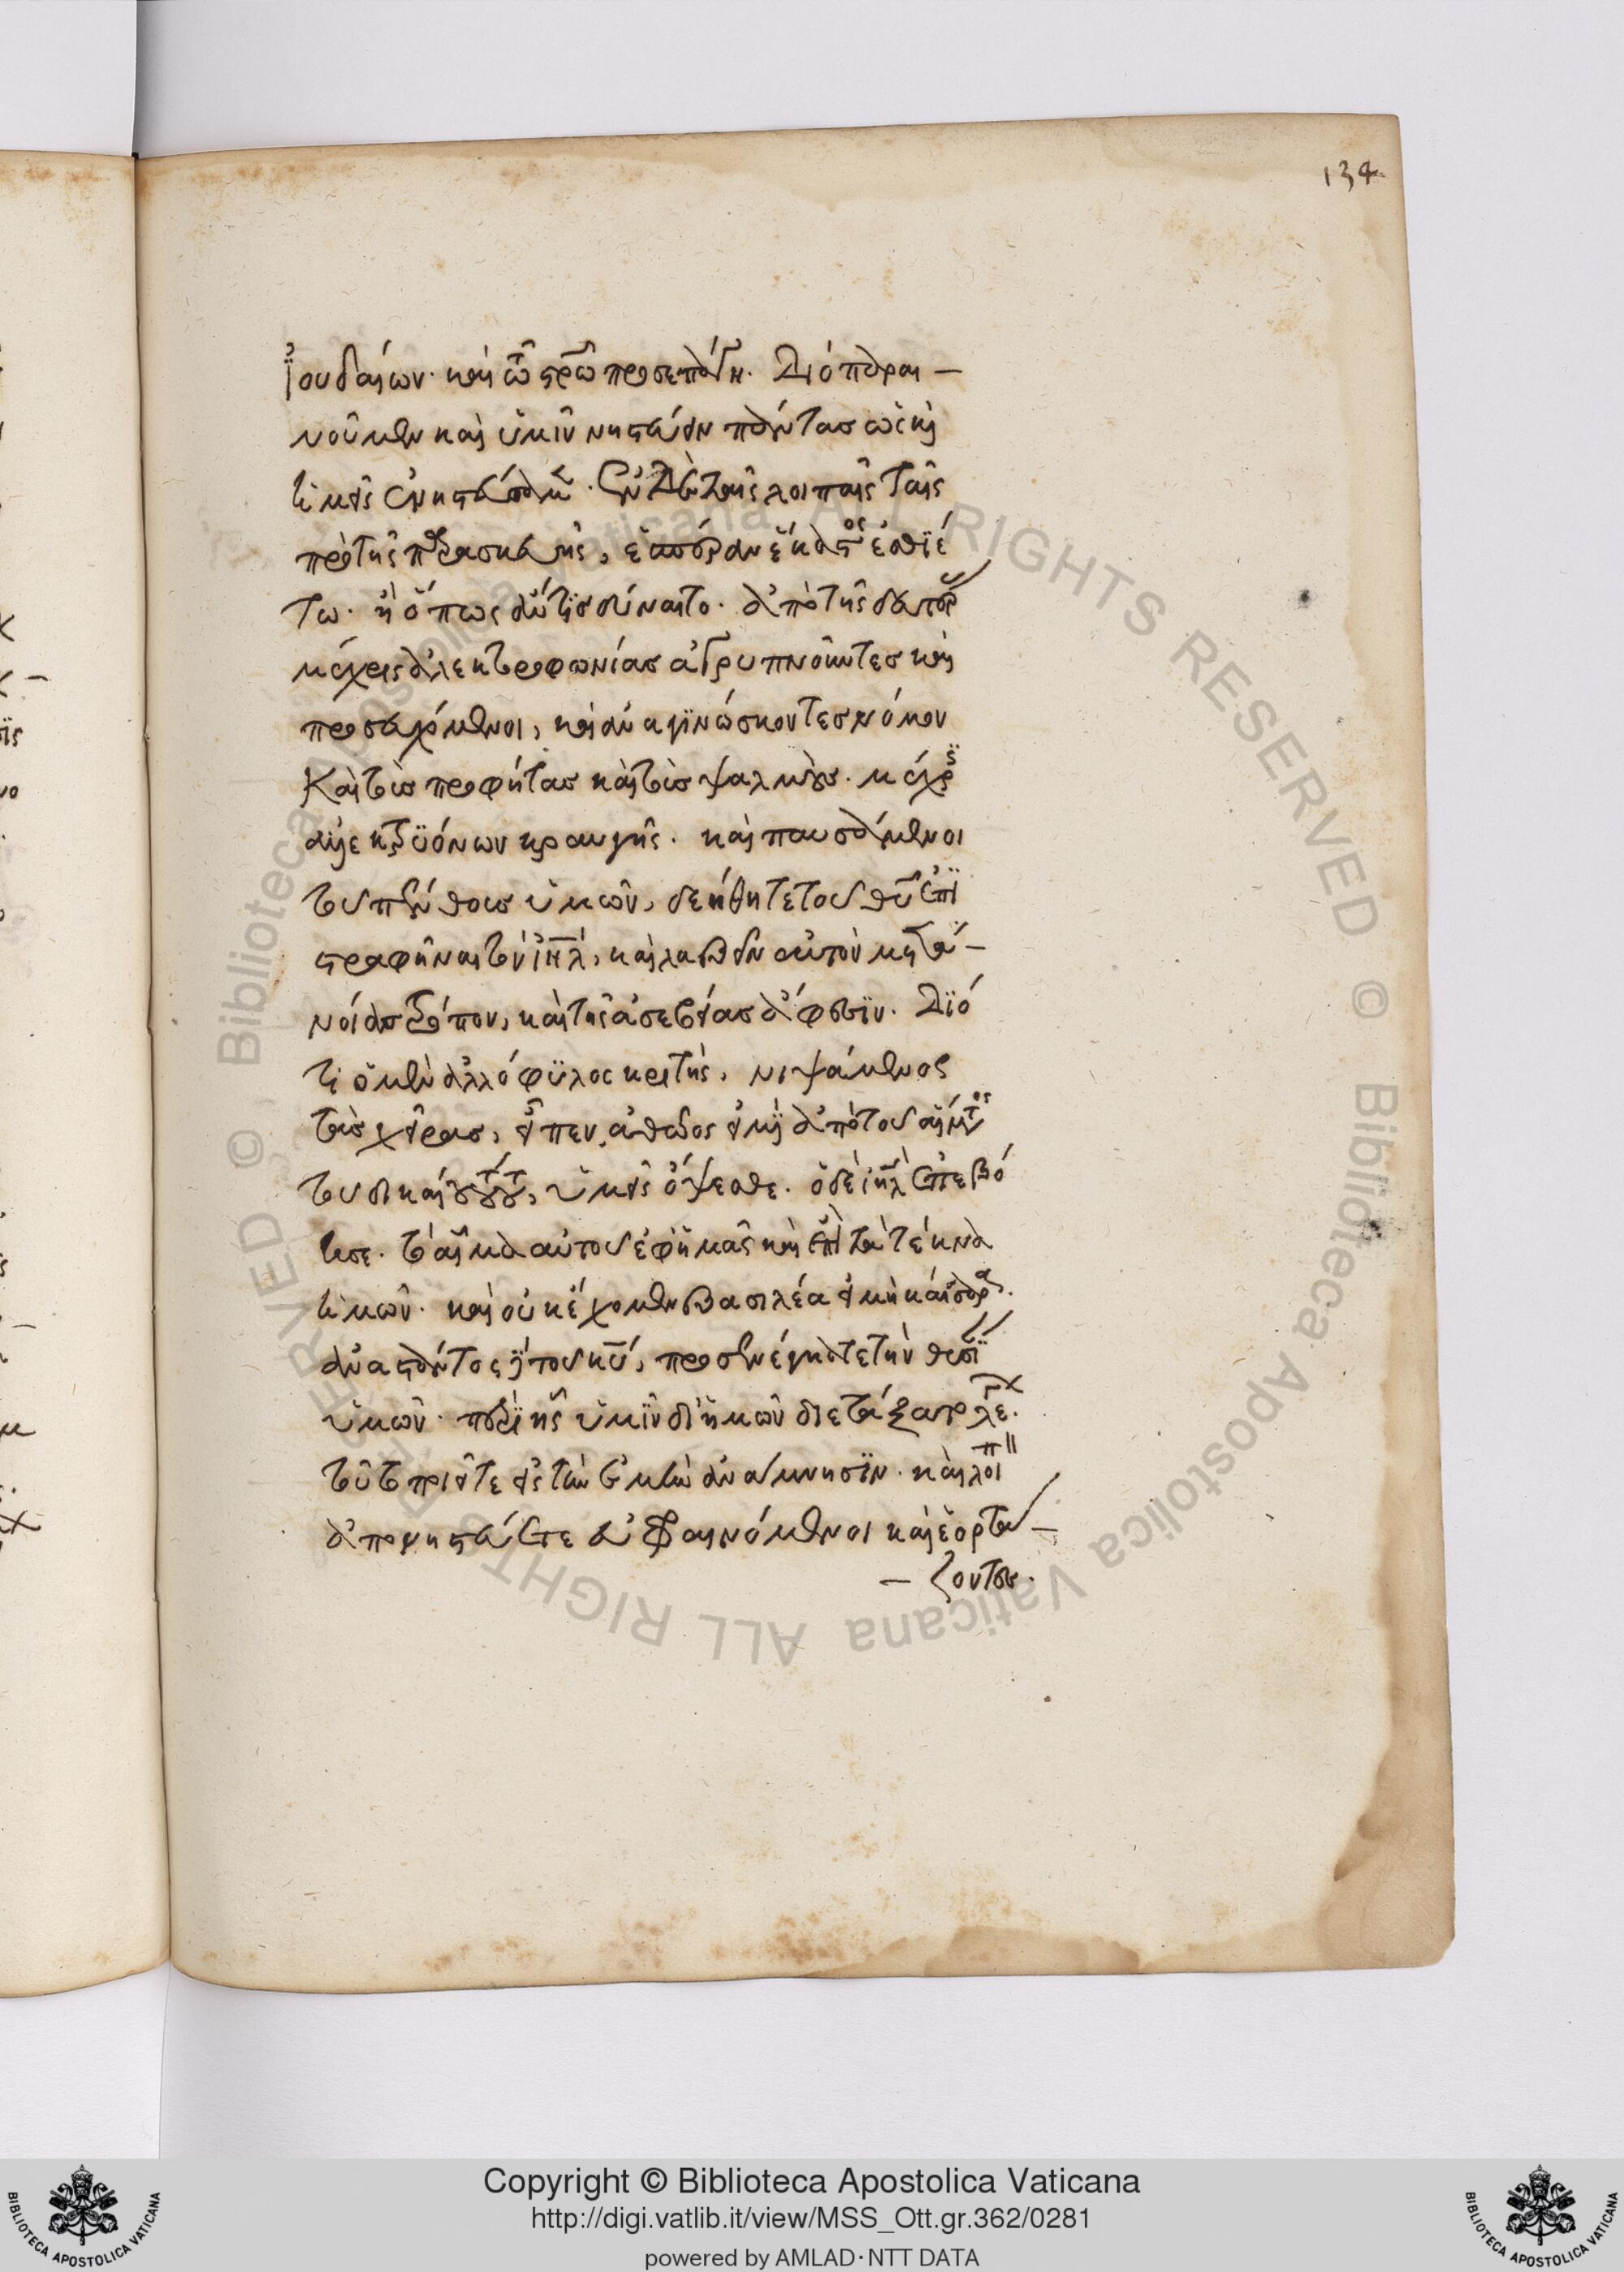 134
Ἰουδαίων· καὶ τῶ στρῶ προσεπάγη. Διὸ παραι–
νοῦμεν καὶ ὑμῖν νηστεύειν πάντας ὡς καὶ
ἡμεῖς ἐνηστεύσαμεν. Ἐν δὲ ταῖς λοιπαῖς ταῖς
πρὸ τῆς παρασκευῆς, ἑσπέραν ἕκαστος ἐσθιέ
τω· ἢ ὅπως ἄν τις δύναιτο. ἀπὸ τῆς ἑσπέρας
μέχρις ἀλεκτροφωνίας ἀγρυπνοῦντες καὶ
προσευχόμενοι, καὶ ἀναγινώσκοντες νόμον
Καὶ τοὺς προφήτας καὶ τοὺς ψαλμούς. μέχρις
ἀλεκτρυόνων κραυγῆς. καὶ παυσάμενοι
τοῦ πένθους ὑμῶν, δεήθητε τοῦ θῦ ἐπι
στραφῆναι τὸν ἰηλ, καὶ λαβεῖν αὐτὸν μετα–
νοίας τόπον, καὶ τῆς ἀσεβείας ἄφεσιν. Διό
τι ὁ μὲν ἀλλόφυλος κριτής, νιψάμενος
τὰς χεῖρας, εἶπεν, ἀθῶος εἰμὶ ἀπὸ τοῦ αἵματος
τοῦ δικαίου τούτου, ὑμεῖς ὄψεσθε. ὁ δὲ ἰηλ ἐπεβό
ησε. τὸ αἷμα αὐτοῦ ἐφ' ἡμᾶς καὶ ἐπὶ τὰ τέκνα
ἡμῶν. καὶ οὐκ ἔχομεν βασιλέα εἰ μὴ καίσαρα.
ἀναστάντος τοῦ κυ, προσενέγκατε τὴν θυσίαν
ὑμῶν. περὶ ἧς ὑμῖν δι' ἡμῶν διετάξατο λε.
τοῦτο ποιεῖτε εἰς τὴν ἐμὴν ἀνάμνησιν. καὶ λοιπὸν
ἀπονηστεύετε εὐφραινόμενοι καὶ ἑορτά–
– ζοντες.
Copyright © Biblioteca Apostolica Vaticana
http://digi.vatlib.it/view/MSS_Ott.gr.362/0281
powered by AMLAD·NTT DATA
BIBLIOTECA APOSTOLICA VATICANA
BIBLIOTECA APOSTOLICA VATICANA
© Biblioteca Apostolica Vaticana ALL RIGHTS RESERVED © Biblioteca Apostolica Vaticana ALL RIGHTS RESERVED